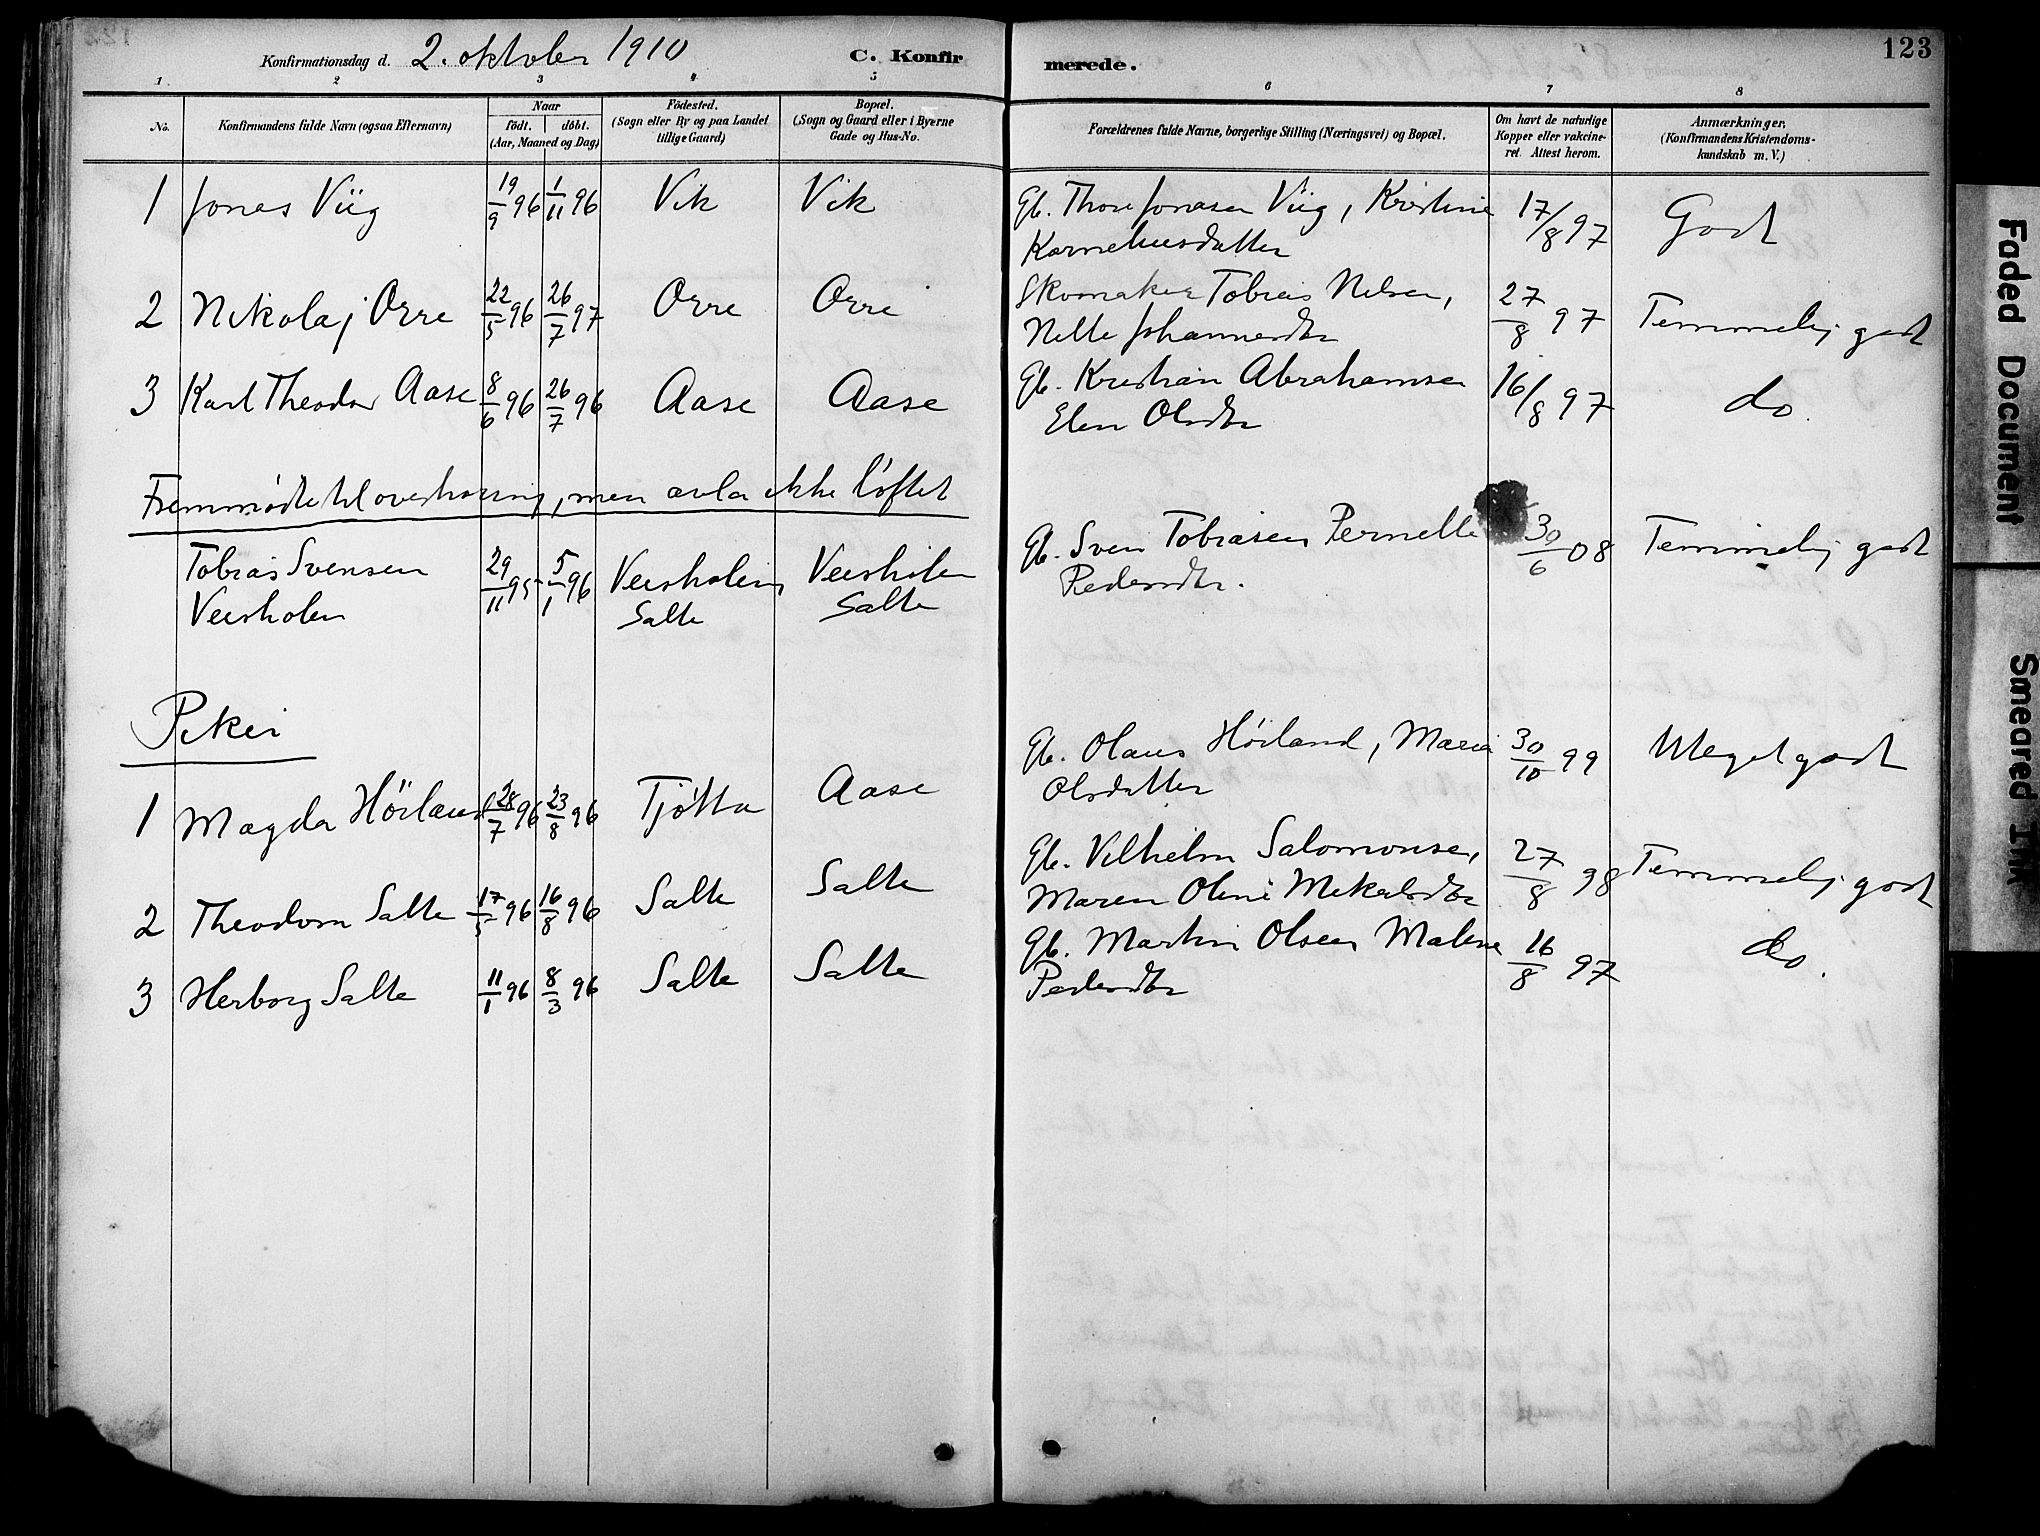 Konfirmationsdag d. 2. oktober 1910 C. Konfirmerede. 123
1 2 3 4 5 6 7 8
No. Konfirmandens fulde Navn (ogsaa Efternavn) Naar født. døbt. (Aar, Maaned og Dag) Fødested. (Sogn eller By og paa Landet tillige Gaard) Bopæl. (Sogn og Gaard eller i Byerne Gade og Hus-No. Forældrenes fulde Navne, borgerlige Stilling (Næringsvei) og Bopæl. Om havt de naturlige Kopper eller vakcineret. Attest herom. Anmærkninger, (Konfirmandens Kristendomskundskab m. V.)
1 Jonas Viig 19/9 96 1/11 96 Vik Vik Gb. Thore Jonasen Viig, Kristine 17/8 97 Godt
Korneliusdatter
2 Nikolaj Orre 22/5 96 26/7 97 Orre Orre Skomaker Tobias Nilsen, 27/8 97 Temmelig godt
Nelle Johannesdtr
3 Karl Theodor Aase 8/6 96 26/7 96 Aase Aase Gb. Kristian Abrahamsen 16/8 97 do.
Elen Olsdtr
Fremmødte til overhøring, men avla ikke løftet
Tobias Svensen 29/11 95 5/1 96 Veersholen Veersholen Gb. Sven Tobiasen Pernelle 30/6 08 Temmelig godt
Veersholen Salte Salte Pedersdtr.
Piker
1 Magda Höiland 28/7 96 23/8 96 Tjøtta Aase Gb. Olaus Höiland, Maria 30/10 99 Meget godt
Olsdatter
2 Theodora Salte 17/5 96 16/8 96 Salte Salte Gb. Vilhelm Salomonsen, 27/8 98 Temmelig godt
Maren Oline Mikalsdtr
3 Herborg Salte 11/1 96 8/3 96 Salte Salte Gb. Martin Olsen Malene 16/8 97 do.
Pedersdtr
Faded Document
Smeared Ink